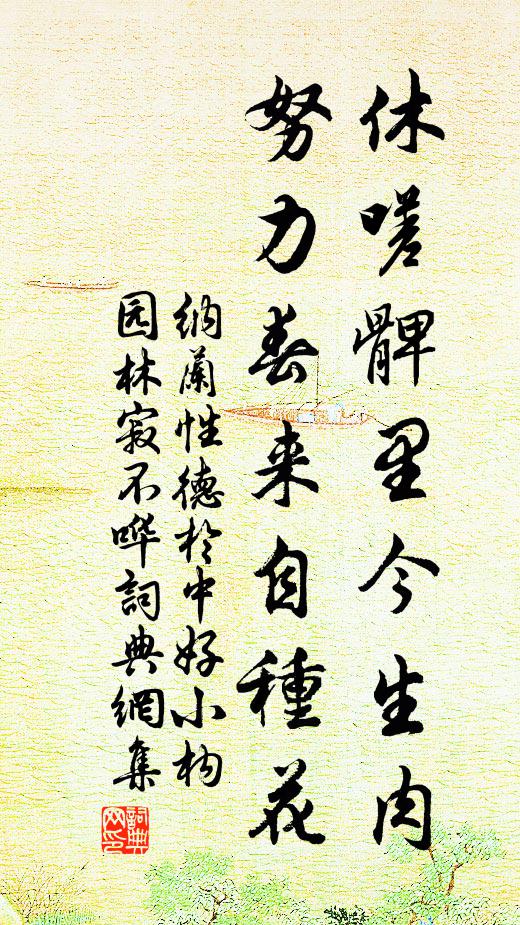 休嗟髀里今生肉
努力春来自種花
纳蘭性德於中好小构
园林寂不哗詞典網集
詞典
网印